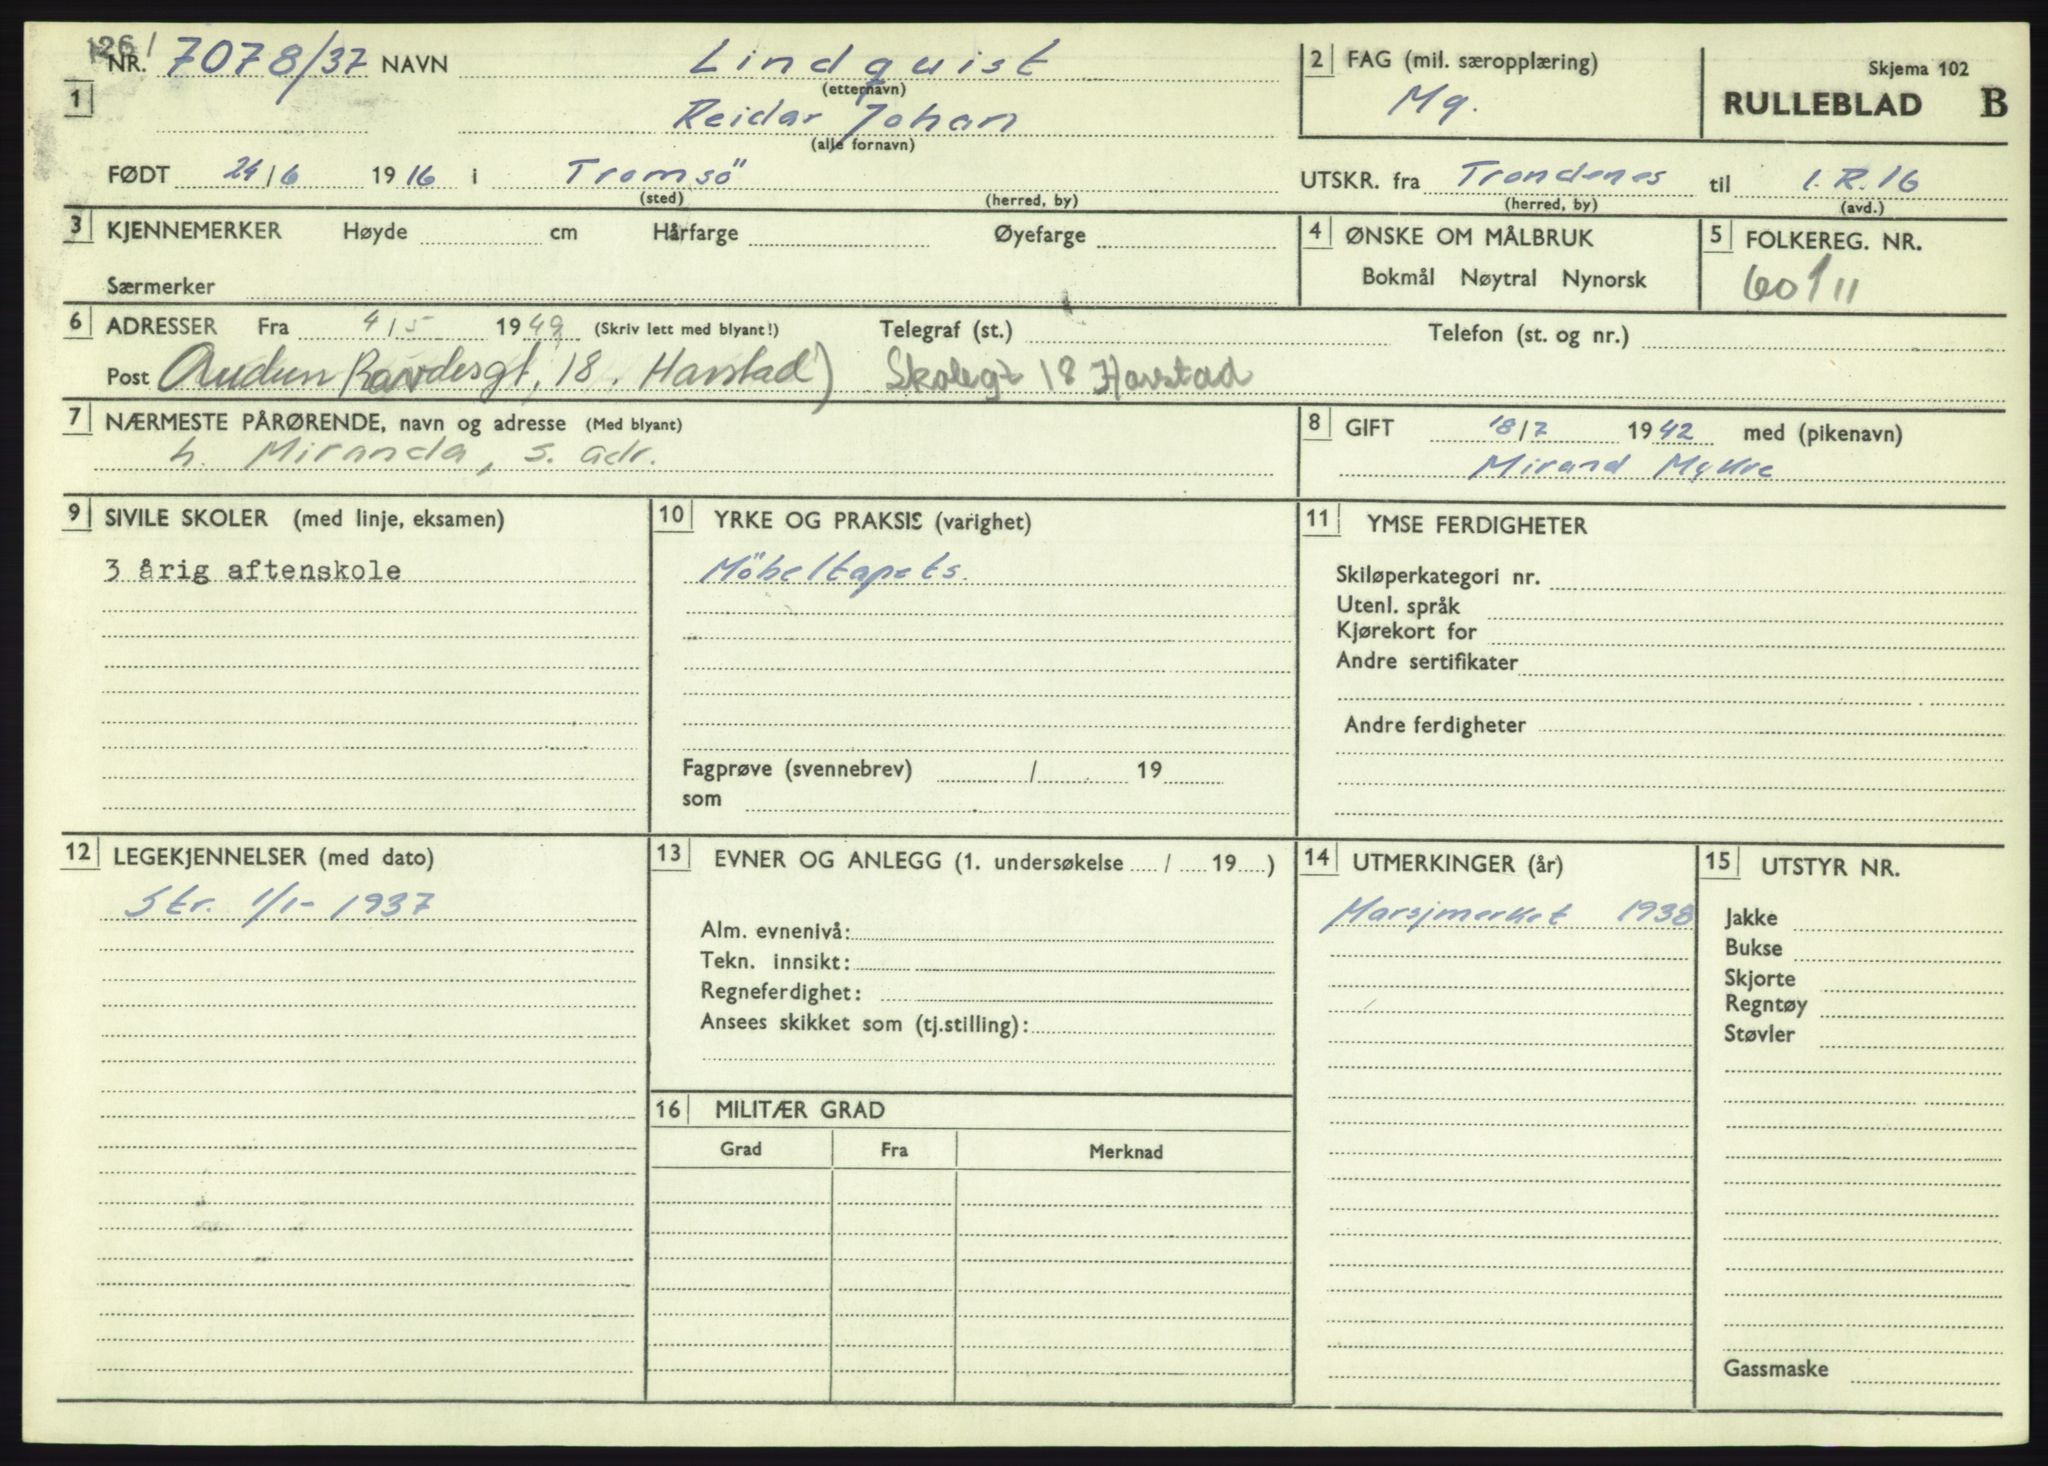 1261
NR. 7078/37 NAVN Lindquist
(etternavn)
1
Reidar Johan
(alle fornavn)
FØDT 24/6 1916 i Tromsö
(sted) (herred, by)
2 FAG (mil. særopplæring)
Mg.
Skjema 102
RULLEBLAD B
UTSKR. fra Trondenes til I.R.16
(herred, by) (avd.)
3 KJENNEMERKER Høyde cm Hårfarge Øyefarge
Særmerker
4 ØNSKE OM MÅLBRUK
Bokmål Nøytral Nynorsk
5 FOLKEREG. NR.
6 ADRESSER Fra 4/5 1949 (Skriv lett med blyant!) Telegraf (st.) Telefon (st. og nr.)
Post Audun Ravdesgt, 18. Harstad) Skolegt 18 Harstad
7 NÆRMESTE PÅRØRENDE, navn og adresse (Med blyant)
h. Miranda, s. adr.
8 GIFT 18/7 1942 med (pikenavn)
Mirand
9 SIVILE SKOLER (med linje, eksamen)
3 årig aftenskole
10 YRKE OG PRAKSIS (varighet)
Möbeltapets.
Fagprøve (svennebrev) / 19
som
11 YMSE FERDIGHETER
Skiløperkategori nr.
Utenl. språk
Kjørekort for
Andre sertifikater
Andre ferdigheter
12 LEGEKJENNELSER (med dato)
Str. 1/1- 1937
13 EVNER OG ANLEGG (1. undersøkelse / 19 )
Alm. evnenivå:
Tekn. innsikt:
Regneferdighet:
Ansees skikket som (tj.stilling):
16 MILITÆR GRAD
Grad Fra Merknad
14 UTMERKINGER (år)
Marsjmerket 1938
15 UTSTYR NR.
Jakke
Bukse
Skjorte
Regntøy
Støvler
Gassmaske